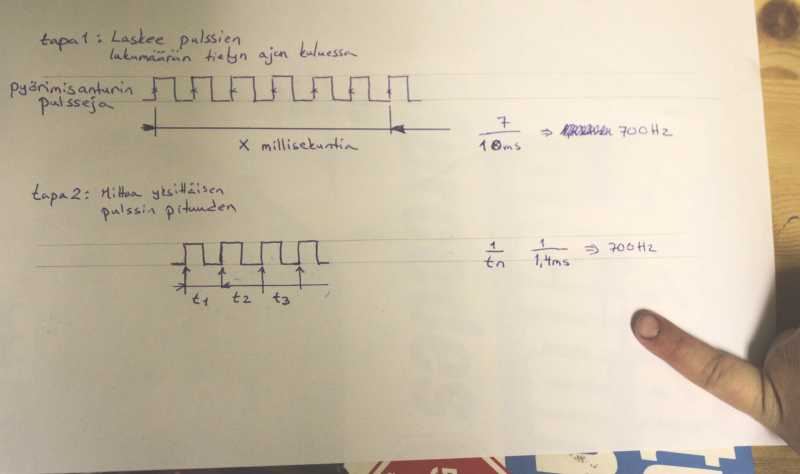 tapa1: Laskee pulssien
lukumäärän tietyn ajan kuluessa
pyörimisanturin
pulsseja
X millisekuntia
7
10ms
⇒ 700Hz
tapa2: Mittaa yksittäisen
pulssin pituuden
t1 t2 t3
1
tn
1
1,4ms
⇒ 700Hz